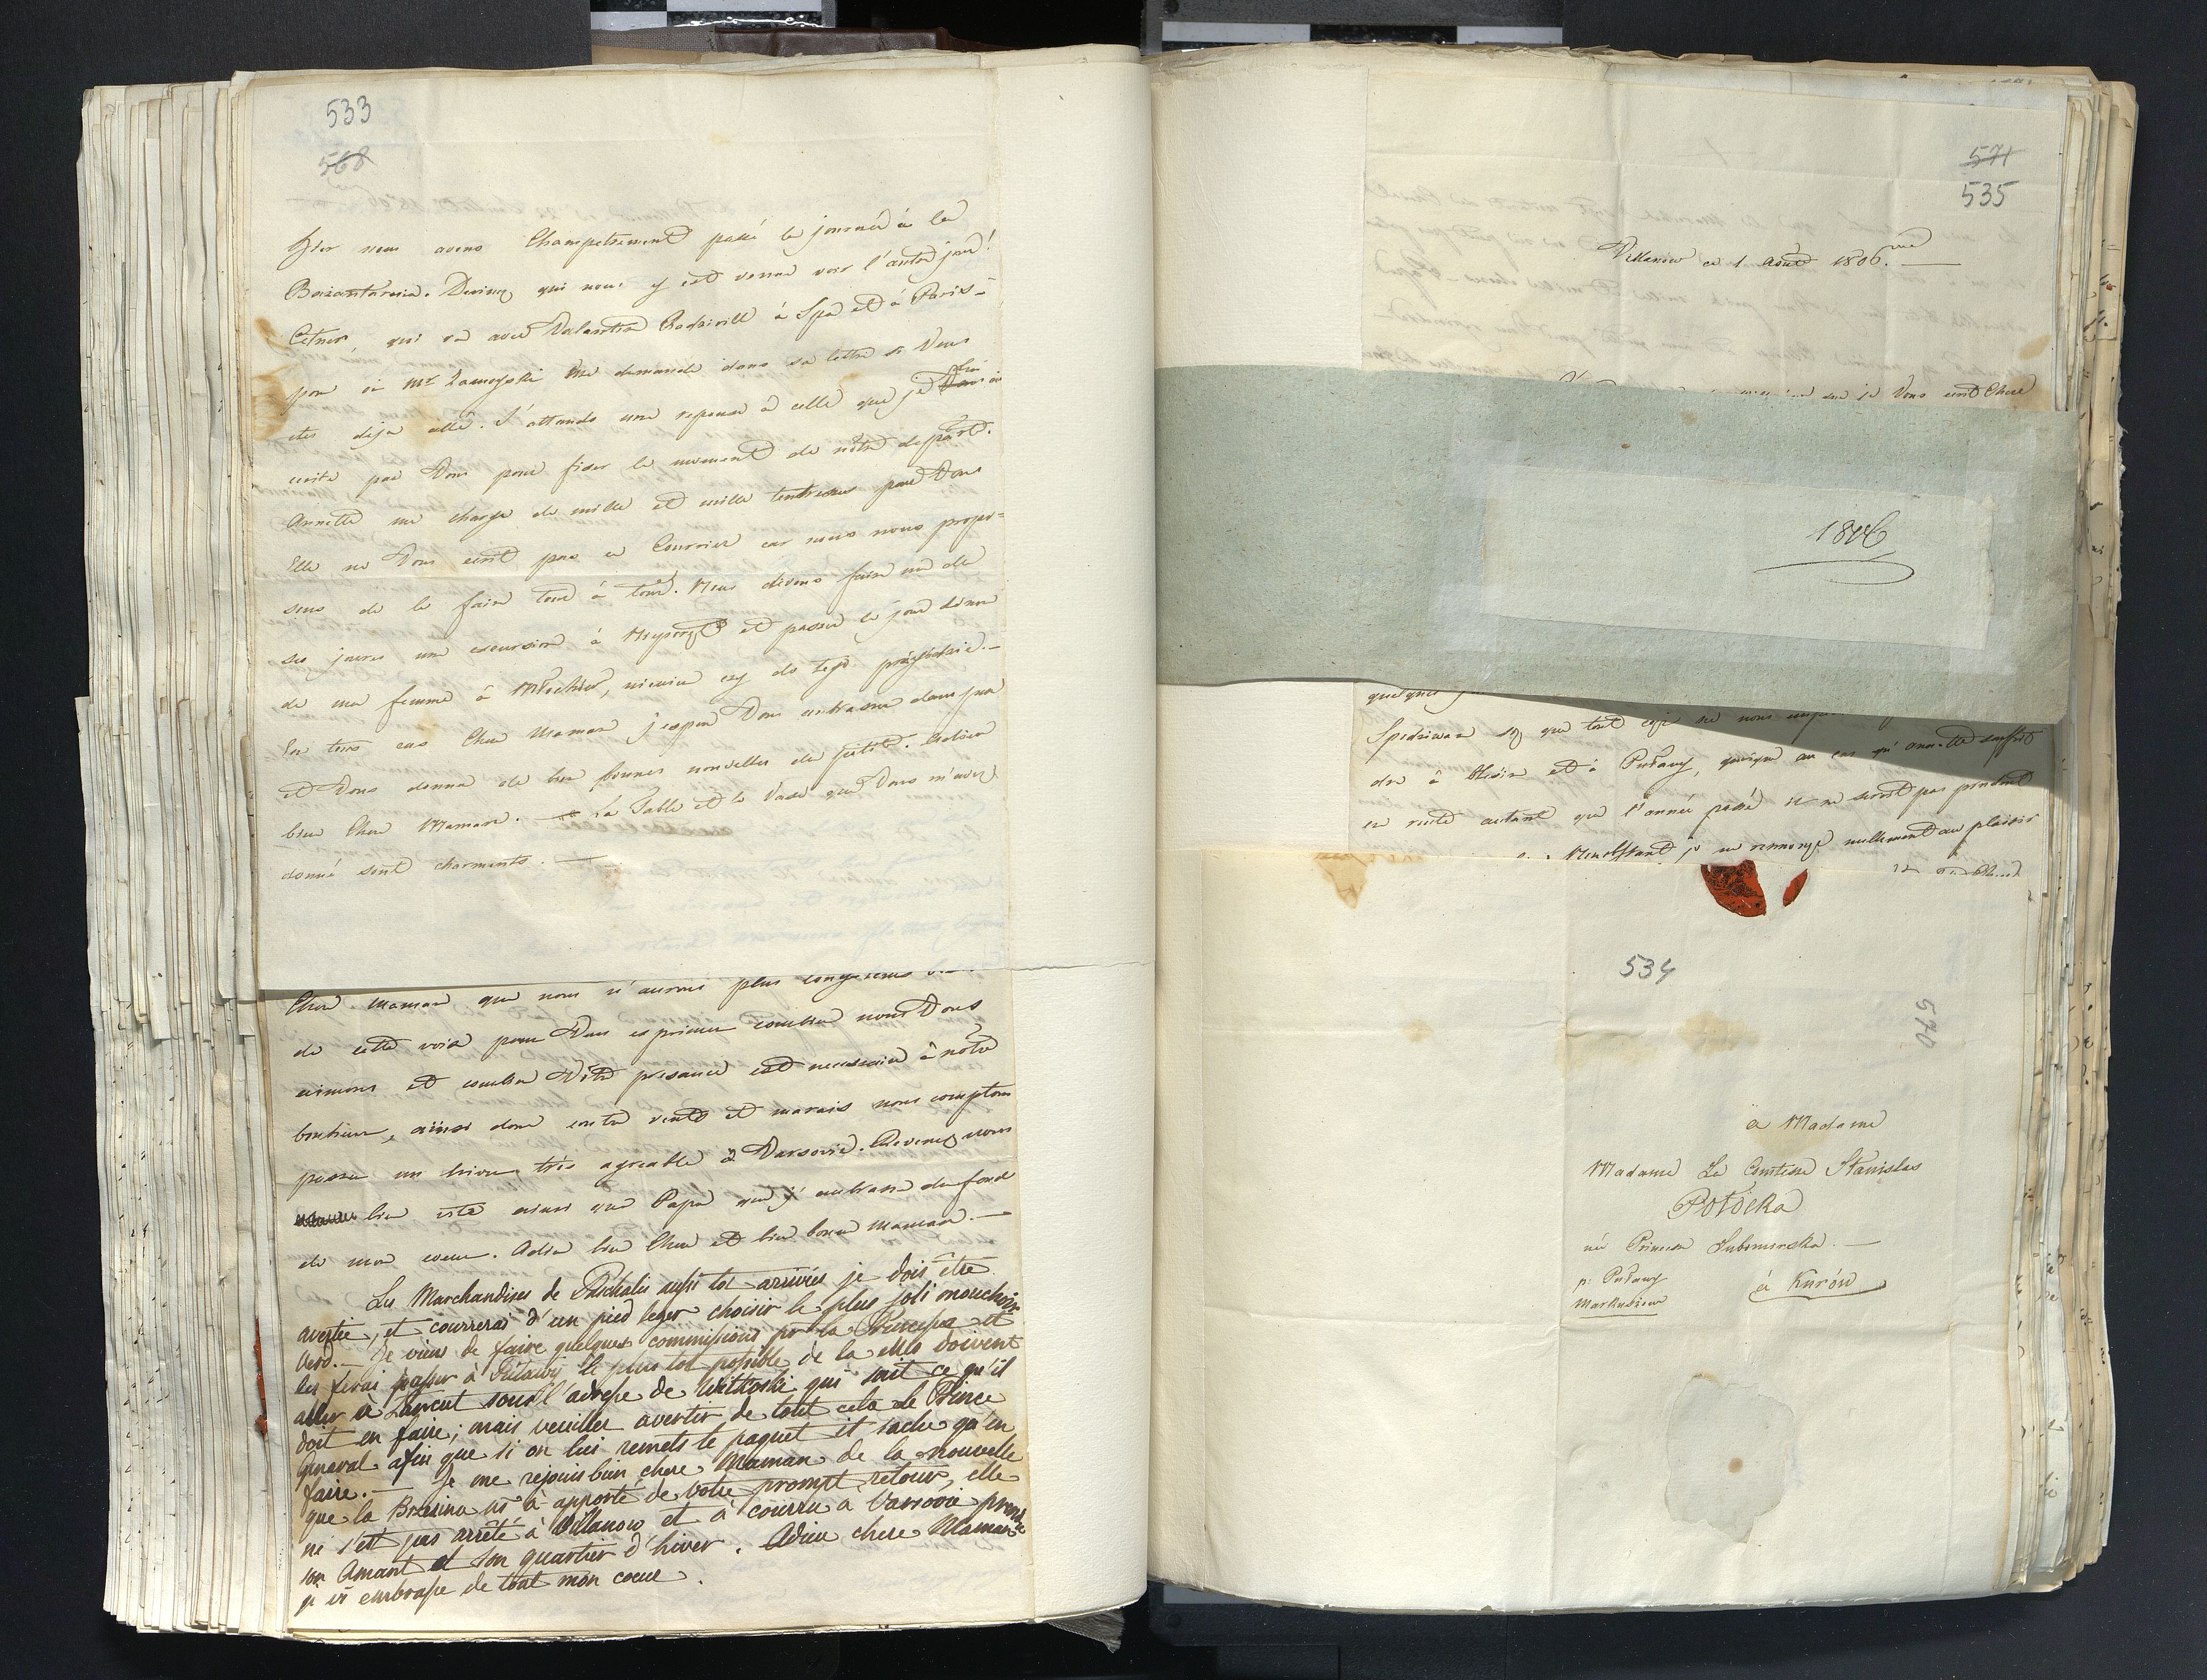 533
568
Hier nous avons Champetrement passé la journée à la
Bazantarnia. Devinez qui nous y est venu voir l'autre jour!
Cetner, qui va avec Valentin Radzivill à Spa et à Paris –
pour où Mr Zamoyski me demande dans sa lettre si Vous
etes deja allée. J'attends une reponse à celle que je lui ai
ecrite par Vous pour fixer le moment de nôtre depart.
Annette me charge de mille et mille tendresses pour Vous
Elle ne Vous ecrit pas ce Courrier car nous nous propo=
sons de le faire tour à tour. Nous devons faire un de
ses jours une excursion à et passer le jour de nom
de ma femme à , niewiem czy do tego przyidzie. –
En tous cas Chere Maman j'espere Vous embrasser dans peu
et Vous donner de bien bonnes nouvelles du petit. Adieu
bien Chere Maman. – La Table et le Vase que Vous m'avez
donné sont charmants. –
Chere Maman que nous n'aurons plus
de cette voix pour Vous exprimer combien nous Vous
aimons et combien Vôtre presance est necessaire à nôtre
bonheur, ainsi donc contre vents et marais nous comptons
passer un hiver très agreable à Varsovie. Revenez nous
bien vite ainsi que Papa que j'embrasse du fond
de mon coeur. Adieu bien Chere et bien bonne Maman. –
Les Marchandises de Paschalis aussi tot arrivées je dois être
avertie, et courrerai d'un pied leger choisir le plus joli mouchoir
verd. – Je viens de faire quelques commissions pr la Princesse et
les ferai passer à Pulawy le plus tot possible de la elles doivent
aller à Lancut sous l'adresse de Witkoski qui sait ce qu'il
doit en faire; mais veuillez avertir de tout cela le Prince
General afin que si on lui remets le paquet il sache qu'en
faire. – Je me rejouis bien chere Maman de la nouvelle
que la Brzezina ns à apporté de votre prompt retour, elle
ne s'est pas arrêté à Villanow et à courru a Varsovie prendre
son Amant et son quartier d'hiver. Adieu chere Maman
je vs embrasse de tout mon coeur.
571
535
Villanow ce 1 Août 1806.
que je Vous ecrit Chere
1806
quelques
Spodziwam się que tout ceci ne nous
dre à et à Pulawy, quoique au cas qu'Annette souffrit
en route autant que l'année passée il ne seroit pas prudent
Nonobstant je ne renonce nullement au plaisir
534
570
à Madame
Madame La Comtesse Stanislas
Potocka
née Princesse Lubomirska. –
p: Pulawy
Markuszow
à Kurów